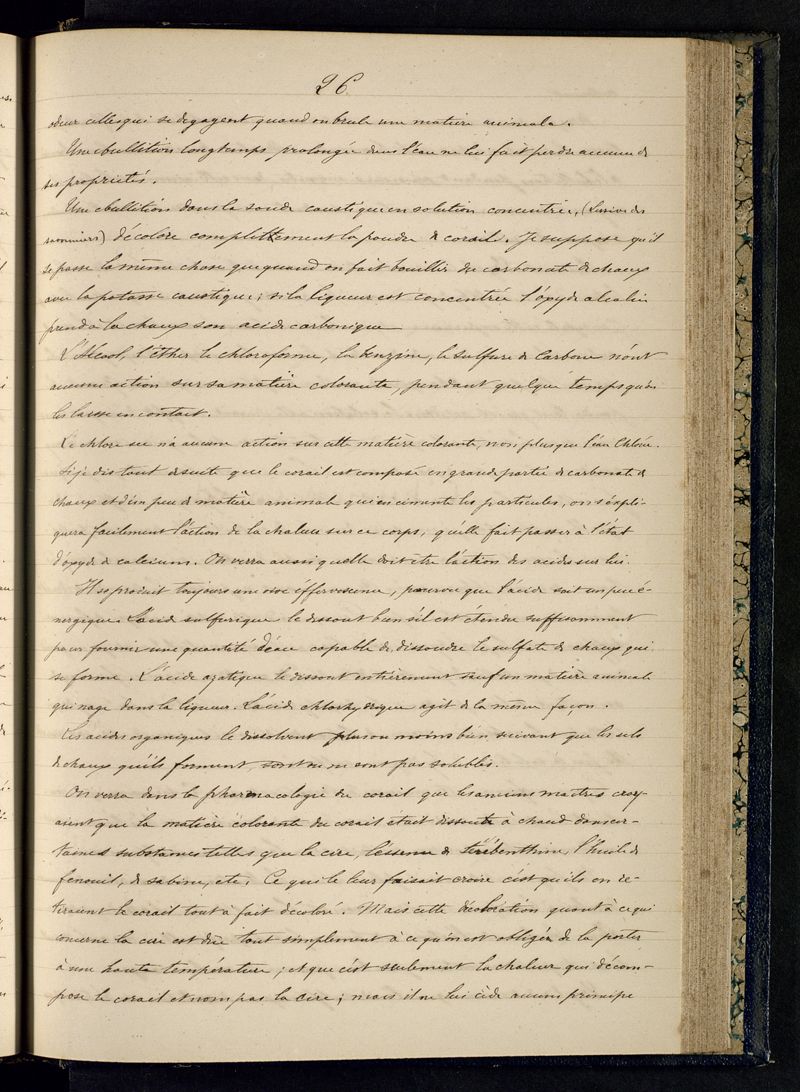 26
odeur celles qui se degagent quand on brule une matière animale.
Une ebullition longtemps prolongée dans l'eau ne lui fait perdre aucune de
ses propriétés.
Une ebullition dans la soude caustique en solution concentrée, (Lessive des
savonniers) décolore complettement la poudre de corail. Je suppose qu'il
se passe la même chose que quand on fait bouillir du carbonate de chaux
avec la potasse caustique; si la liqueur est concentrée l'oxyde alcalin
prend à la chaux son acide carbonique
L'Alcool, l'éther le chloroforme, la benzine, le sulfure de Carbone n'ont
aucune action sur sa matière colorante, pendant quelque temps qu'on
les laisse en contact.
Le chlore sec n'a aucune action sur cette matière colorante, non plus que l'eau Chlorée.
Si je dis tout de suite que le corail est composé en grande partie de carbonate de
chaux et d'un peu de matière animale qui en cimente les particules, on s'expli-
quera facilement l'action de la chaleur sur ce corps, qu'elle fait passer à l'état
d'oxyde de calcium. On verra aussi quelle doit être l'action des acides sur lui.
Il se produit toujours une vive éffervescence, pourvu que l'acide soit un peu é-
nergique. L'acide sulfurique le dissout bien s'il est étendu suffisamment
pour fournir une quantité d'eau capable de dissoudre le sulfate de chaux qui
se forme. L'acide azotique le dissout entièrement sauf une matière animale
qui nage dans la liqueur. L'acide chlorhydrique agit de la même façon.
Les acides organiques le dissolvent plus ou moins bien suivant que les sels
de chaux qu'ils forment, sont ou ne sont pas solubles.
On verra dans la pharmacologie du corail que les anciens maîtres croy-
aient que la matière colorante du corail était dissoute à chaud dans cer-
taines substances telles que la cire, l'essence de térébenthine, l'huile de
fenouil, de sabine, etc. Ce qui le leur faisait croire c'est qu'ils en re-
tiraient le corail tout à fait décoloré. Mais cette décoloration quant à ce qui
concerne la cire est dûe tout simplement à ce qu'on est obligée de la porter
à une haute température; et que c'est seulement la chaleur qui décom-
pose le corail et nom pas la cire; mais il ne lui cède aucun principe